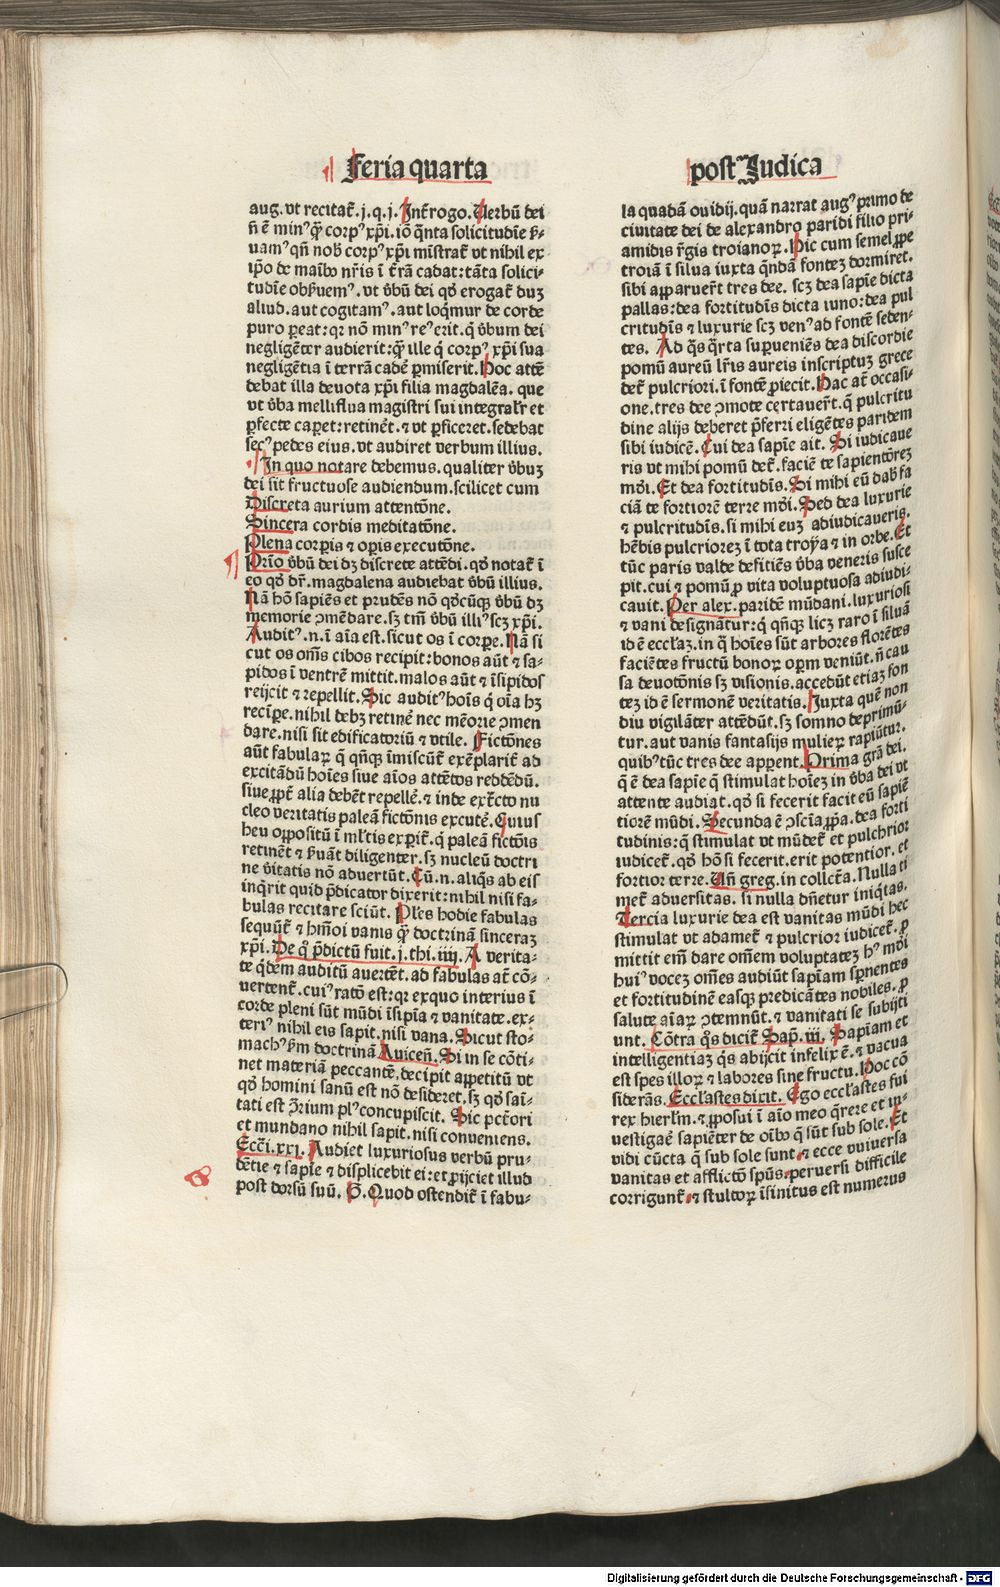 Feria quarta
aug. vt recitat̄. j. q. j. Int̄rogo. Uerbū dei
ñ ē min⁹ q̄ȝ corp⁹ xp̄i. iō q̄nta solicitudīe ẜ-
uam⁹ qñ nob̄ corp⁹ xp̄i mīstrat̄ vt nihil ex
ip̄o de maīb⁹ nr̄is ī t̄rā cadat: tāta solici-
tudīe obẜuem⁹. vt ỽbū dei qd̛ erogat̄ duȝ
aliud. aut cogitam⁹. aut loq̄mur de corde
puro ꝑeat: qr nō min⁹ re⁹ erit. q̇ ỽbum dei
negligēter audierit: q̄ȝ ille q̇ corp⁹ xp̄i sua
negligētia ī terrā cadē ꝑmiserit. Hoc attē
debat illa deuota xp̄i filia magdalēa. que
vt ỽba melliflua magistri sui integralr̄ et
ꝑfecte caꝑet: retinēt. ⁊ vt ꝑficeret. sedebat
sec⁹ pedes eius. vt audiret verbum illius.
In quo notare debemus. qualiter ỽbuȝ
dei sit fructuose audiendum. scilicet cum
Discreta aurium attentōne.
Sincera cordis meditatōne.
Plena corꝑis ⁊ oꝑis executōne.
Prīo ỽbū dei dȝ discrete attēdi. qd̛ notat̄ ī
eo qd̛ dr̄. magdalena audiebat ỽbū illius.
Nā hō sapiēs et prudēs nō qd̛cūqȝ ỽbū dȝ
memorie ɔmēdare. sȝ tm̄ ỽbū illi⁹ scȝ xp̄i.
Audit⁹. n. ī aīa est. sicut os ī corꝑe. Nā si
cut os om̄s cibos recipit: bonos aūt ⁊ sa-
pidos ī ventrē mittit. malos aūt ⁊ īsipidos
reijcit ⁊ repellit. Sic audit⁹ hoīs q̇ oīa hȝ
recīꝑe. nihil debȝ retinē nec mēorie ɔmen
dare. nisi sit edificatoriū ⁊ vtile. Fictōnes
aūt fabulaꝝ q̄ qn̄qȝ īmiscūt̄ exēplarit̄ ad
excitādū hoīes siue aīos attētos reddēdū.
siue ꝓpt̄ alia debēt repellē. ⁊ inde extr̄cto nu
cleo veritatis paleā fictōnis excutē. Cuius
heu oppositū ī ml̄tis experit̄. q̇ paleā fictōis
retinēt ⁊ ẜuāt diligenter. sȝ nucleū doctri
ne ỽitatis nō aduertūt. Cū. n. aliq̇s ab eis
inq̇rit quid p̄dicator dixerit: nihil nisi fa-
bulas recitare sciūt. Pl̄es hodie fabulas
sequūt̄ ⁊ hm̄oi vanis q̄ȝ doctrinā sinceraȝ
xp̄i. De q̇ p̄dictū fuit. j. thi. iiij. A verita-
te q̇dem auditū auertēt. ad fabulas at̄ cō-
uertent̄. cui⁹ ratō est: qr exquo interius ī
corde pleni sūt mūdi īsipīa ⁊ vanitate. ex-
teri⁹ nihil eis sapit. nisi vana. Sicut sto-
mach⁹ ẜm doctrinā Auiceñ. Si in se cōti-
net materiā peccantē. decipit appetitū vt
qd̛ homini sanū est nō desideret. sȝ qd̛ saī-
tati est ɔ̄trium pl⁹ concupiscit. Sic pct̄ori
et mundano nihil sapit. nisi conueniens.
Ecc̄i. xxj. Audiet luxuriosus verbū pru-
dētie ⁊ sapīe ⁊ displicebit ei: et ꝓijciet illud
post dorsū suū. Quod ostendit̄ ī fabu-
post Iudica
la quadā ouidij. quā narrat aug⁹ primo de
ciuitate dei de alexandro paridi filio pri-
amidis r̄gis troianoꝝ. Hic cum semel ꝓpe
troiā ī silua iuxta q̄ndā fonteȝ dormiret.
sibi apparuer̄t tres dee. scȝ dea sapīe dicta
pallas: dea fortitudīs dicta iuno: dea pul
critudīs ⁊ luxurie scȝ ven⁹ ad fontē seden-
tes. Ad q̄s q̄rta suꝑueniēs dea discordie
pomū aureū lr̄is aureis inscriptuȝ grece
det̄ pulcriori. ī fontē ꝓiecit. Hac at̄ occasi-
one. tres dee ɔmote certauer̄t. q̄ pulcritu
dine alijs deberet p̄ferri eligētes paridem
sibi iudicē. Cui dea sapīe ait. Si iudicaue
ris vt mihi pomū det̄. faciē te sapientōreȝ
mūdi. Et dea fortitudīs. Si mihi eū dab̄ fa
ciā te fortiorē terre mūdi. Sed dea luxurie
⁊ pulcritudīs. si mihi euȝ adiudicaueris.
hēbis pulcrioreȝ ī tota troya ⁊ in orbe. Et
tūc paris valde defitiēs ỽba veneris susce
pit. cui ⁊ pomū ꝓ vita voluptuosa adiudi-
cauit. Per alex. paridē mūdani. luxuriosi
⁊ vani designātur: q̇ qn̄qȝ licȝ raro ī siluā
id ē eccl̄aȝ. in q̇ hoīes sūt arbores florētes
faciētes fructū bonoꝝ oꝑm veniūt. ñ cau
sa deuotōnis sȝ visionis. accedūt etiaȝ fon
teȝ id ē sermonē veritatis. Juxta quē non
diu vigilāter attēdūt. sȝ somno deprimū-
tur. aut vanis fantasijs mulieꝝ rapiūtur.
quib⁹ tūc tres dee apꝑent. Prima grā dei.
q̄ ē dea sapīe q̄ stimulat hoīeȝ in ỽba dei vt
attente audiat. qd̛ si fecerit facit eū sapiē
tiorē mūdi. Secunda ē ɔscīa ꝓpa. dea forti
tudinis: q̄ stimulat vt mūdet̄ et pulchrior
iudicet̄. qd̛ hō si fecerit. erit potentior. et
fortior terre. Uñ greg. in collcta. Nulla ti
met̄ aduersitas. si nulla dn̄etur iniq̇tas.
Tercia luxurie dea est vanitas mūdi hec
stimulat vt adamet̄ ⁊ pulcrior iudicet̄. ꝓ
mittit em̄ dare om̄em voluptateȝ h⁹ mūdi
hui⁹ voceȝ om̄es audiūt sapīam sꝑnentes
et fortitudinē easqȝ predicātes nobiles. ꝓ
salute aīaꝝ ɔtemnūt. ⁊ vanitati se subijti
unt. Cōtra q̄s dicit̄ Sap. iij. Sapīam et
intelligentiaȝ q̇s abijcit infelix ē. ⁊ vacua
est spes illoꝝ ⁊ labores sine fructu. Hoc cō
siderās. Eccl̄astes dixit. Ego eccl̄astes fui
rex hierl̄m. ⁊ ꝓposui ī aīo meo q̄rere et in-
uestigare sapiēter de oīb⁹ q̄ sūt sub sole. Et
vidi cūcta q̄ sub sole sunt. ⁊ ecce vniuersa
vanitas et afflictō spūs. peruersi difficile
corrigunt̄. ⁊ stultoꝝ īfinitus est numerus
Digitalisierung gefördert durch die Deutsche Forschungsgemeinschaft - DFG